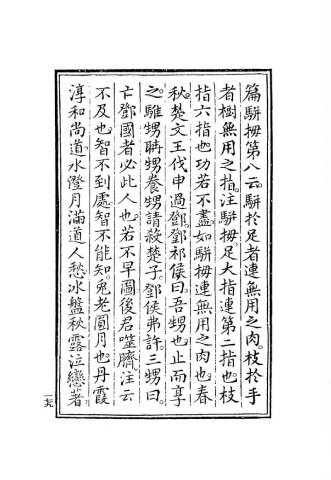 篇駢拇第八云駢於足者連無用之肉枝於手
者樹無用之指注駢拇足大指連第二指也枝
指六指也功若不盡如駢拇連無用之肉也春
秋楚文王伐申過鄧鄧祁侯曰吾甥也止而享
之騅甥聃甥養甥請殺楚子鄧侯弗許三甥曰
亡鄧國者必此人也若不早圖後君噬臍注云
不及也智不到處智不能知兔老圓月也丹霞
淳和尚道水澄月滿道人愁氷盤秋露泣戀著